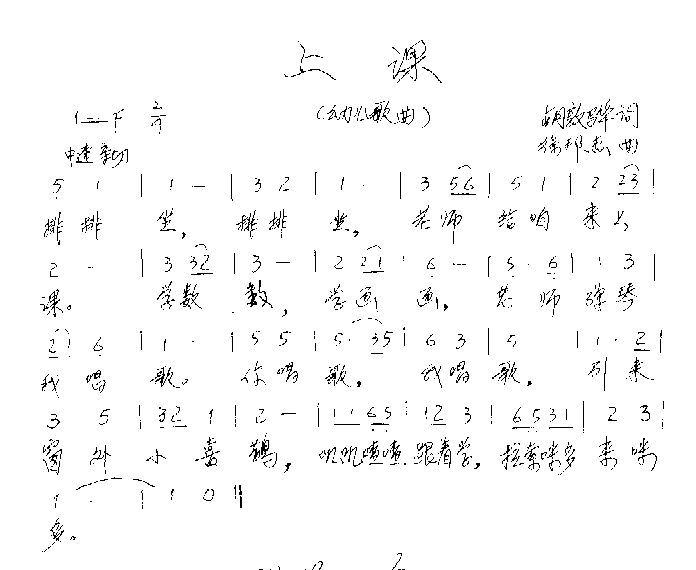 上 课
1=F 2/4 (幼儿歌曲) 胡敦骅词
中速 亲切 徐邦杰曲
5 1 | 1 - | 3 2 | 1 - | 3 56 | 5 1 | 2 23 |
排排 坐, 排排 坐, 老师 给咱 来上
2 - | 3 32 | 3 - | 2 21 | 6 - | 5 · 6 | 1 3 |
课。 学数 数, 学画 画, 老 师 弹琴
2 6 | 1 - | 5 5 | 5 · 35 | 6 3 | 5 | 1 · 2 |
我唱 歌。 你唱 歌, 我唱 歌, 引来
3 5 | 32 1 | 2 - | 11 65 | 12 3 | 65 31 | 2 3 |
窗外 小喜 鹊, 叽叽喳喳 跟着学, 拉索咪多 来咪
1 - | 1 0 ||
多。